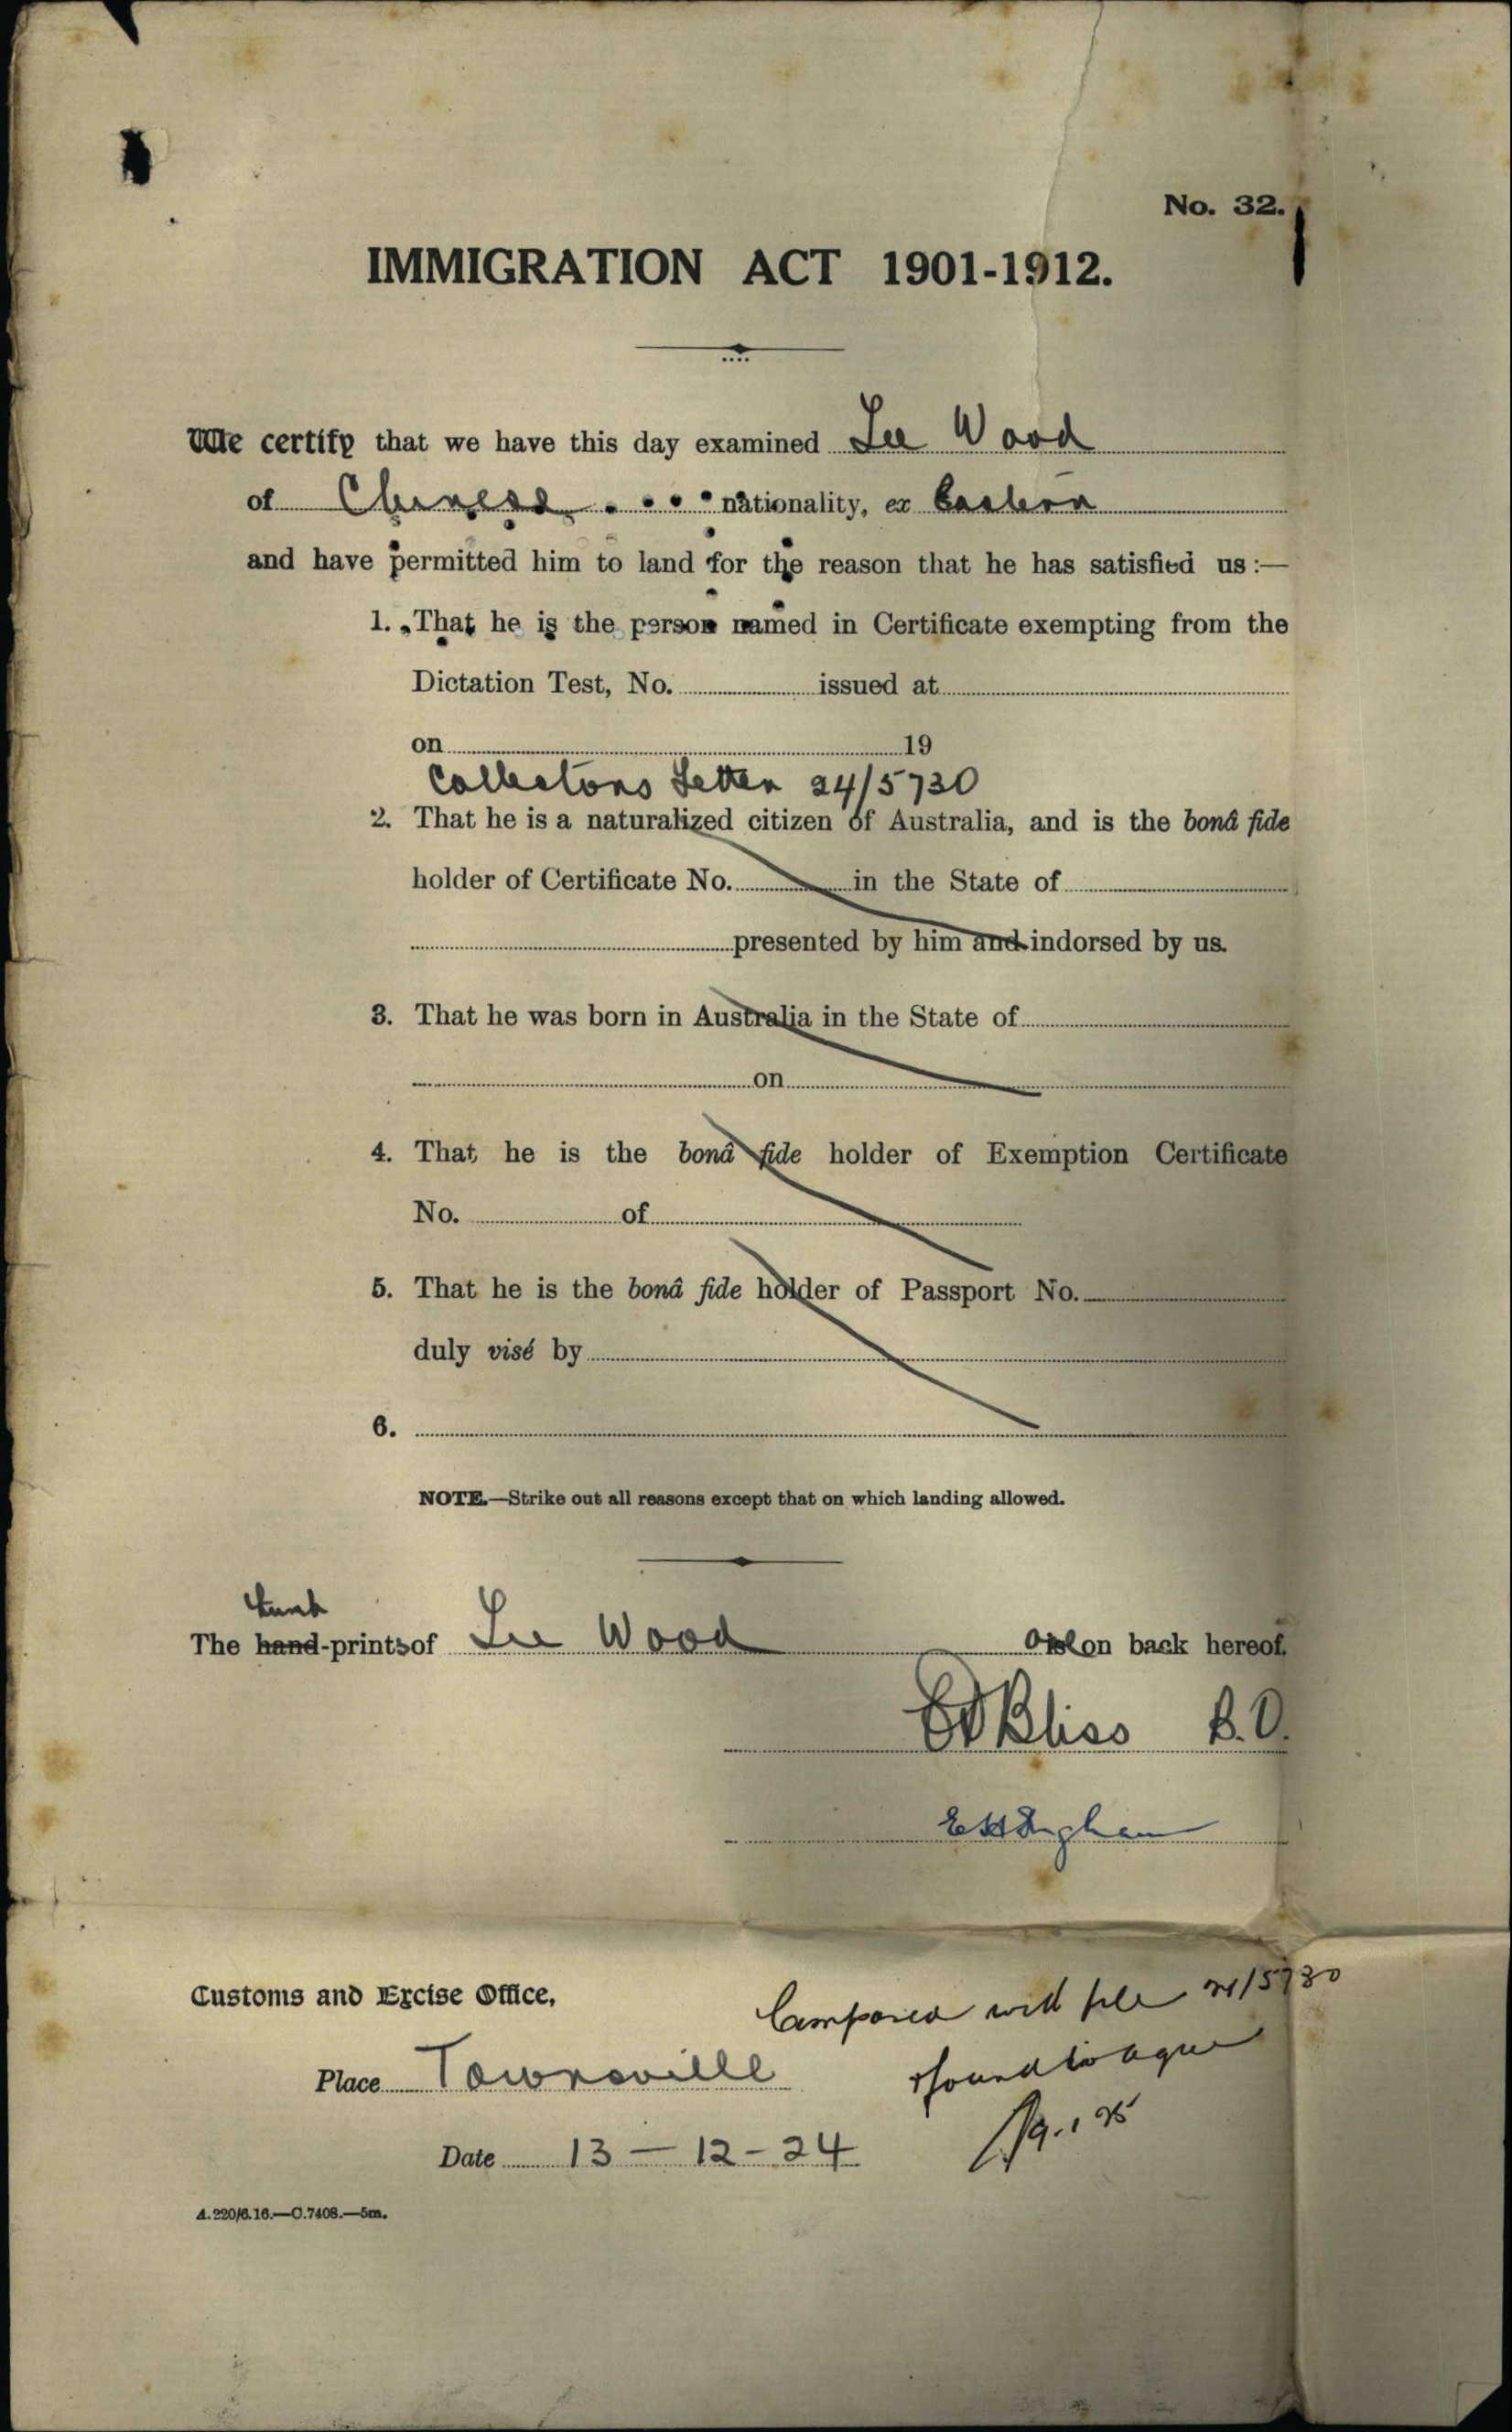 No. 32.
IMMIGRATION ACT 1901-1912.
We certify that we have this day examined Lee Wood
of Chinese nationality, ex Eastern
and have permitted him to land for the reason that he has satisfied us:—
1. That he is the person named in Certificate exempting from the
Dictation Test, No. issued at
on 19
Collectors Letter 24/5730
2. That he is a naturalized citizen of Australia, and is the bonâ fide
holder of Certificate No. in the State of
presented by him and indorsed by us.
3. That he was born in Australia in the State of
on
4. That he is the bonâ fide holder of Exemption Certificate
No. of
5. That he is the bonâ fide holder of Passport No.
duly visé by
6.
NOTE.—Strike out all reasons except that on which landing allowed.
thumb
The hand-prints of Lee Wood are on back hereof.
Bliss B.O.
Customs and Excise Office,
Compared with file 24/5730
Place Townsville
& found to agree
Date 13-12-24
9.1.25
A.220/6.16.—C.7408.—5m.